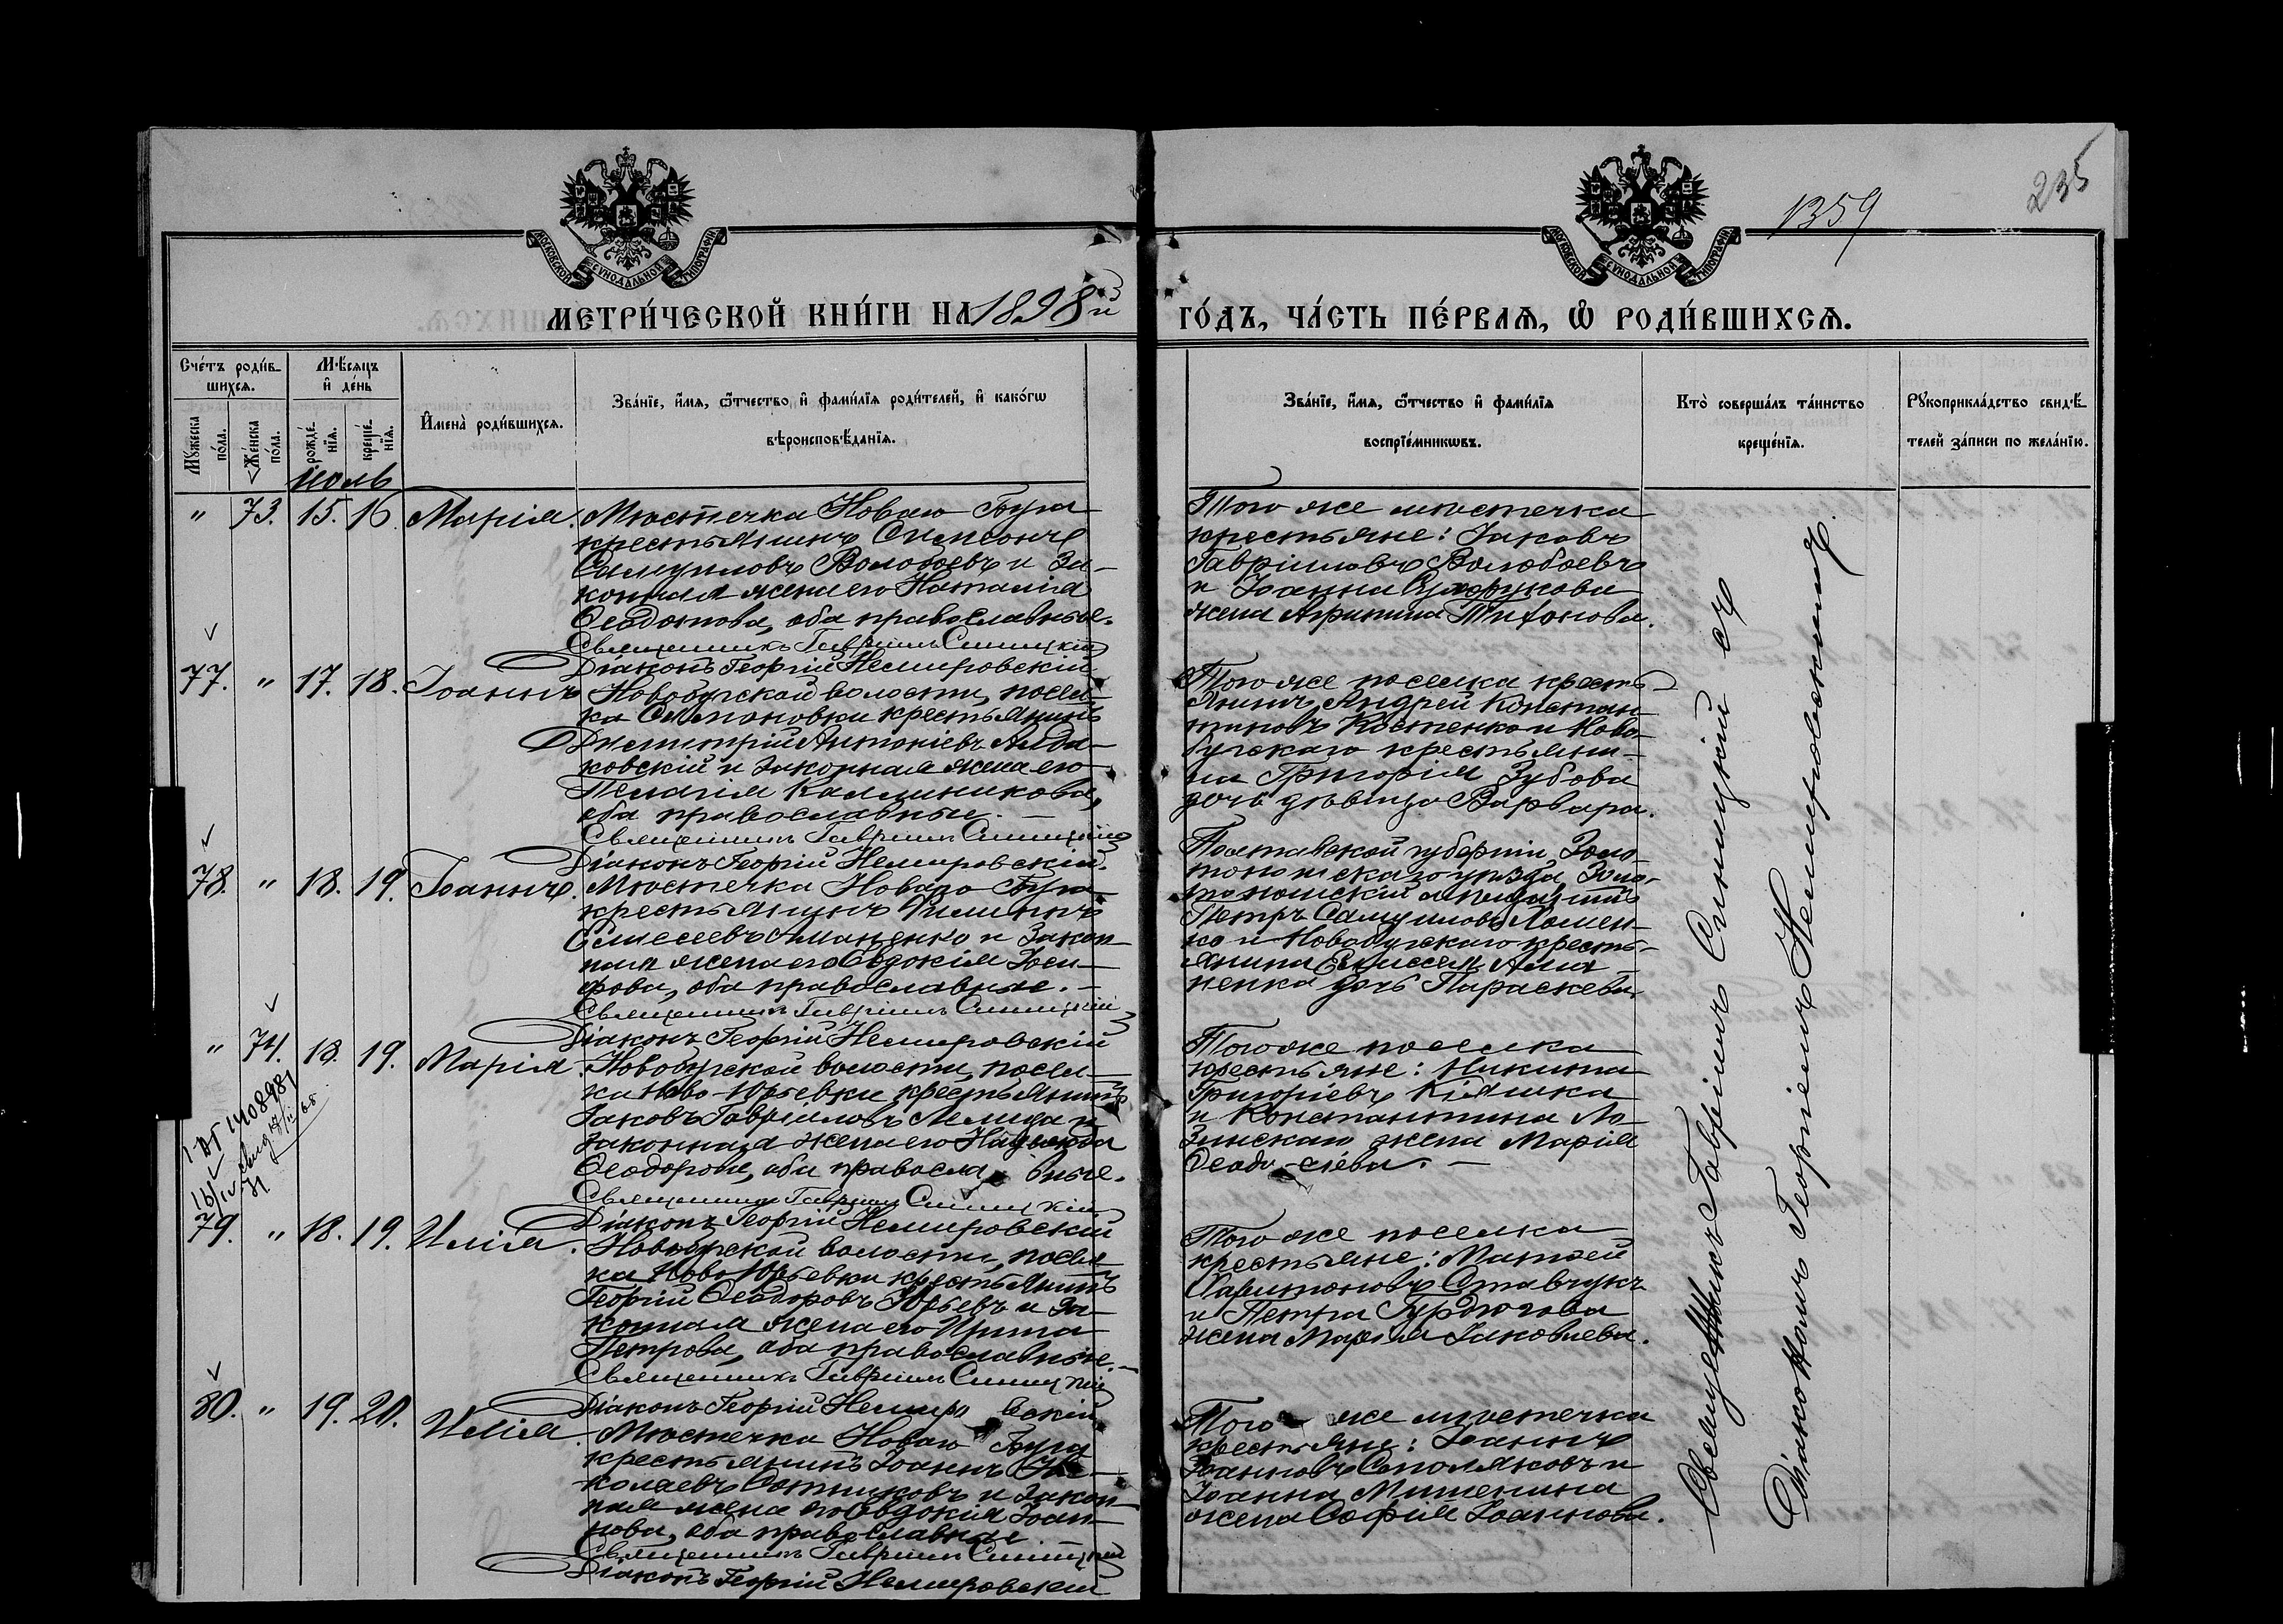 1359
235
МОСКОВСКОЙ СУНОДАЛЬНОЙ ТИПОГРАФІИ
МОСКОВСКОЙ СУНОДАЛЬНОЙ ТИПОГРАФІИ
МЕТРИ́ЧЕСКОЙ КНИ́ГИ НА 1898й
ГО́ДЪ, ЧА́СТЬ ПЕ́РВАѦ, Ѡ РОДИ́ВШИХСѦ.
Сче́тъ роди́в-
шихсѧ.
Мѣ́сяцъ
и҆ де́нь
Мꙋ́жеска по́ла.
Же́нска по́ла.
рожде́нїѧ.
креще́нїѧ.
И҆мена̀ роди́вшихсѧ.
Зва́нїе, и҆́мѧ, ѻ҆́тчество и҆ фами́лїѧ роди́телей, и҆ како́гѡ
вѣроисповѣ́данїѧ.
Зва́нїе, и҆́мѧ, ѻ҆́тчество и҆ фами́лїѧ
воспрїе́мникѡвъ.
Кто̀ соверша́лъ та́инство
креще́нїѧ.
Рꙋкоприкла́дство свидѣ́-
телей за́писи по жела́нїю.
Іюль
" 73. 15. 16. Марія.
Мѣстечка Новаго Буга
крестьянинъ Симеонъ
Самуиловъ Волобоевъ и за-
конная жена его Наталія
Ѳеодотова, оба православные.
Священникъ Гавріилъ Синицкій
Діаконъ Георгій Немировскій
Того же мѣстечка
крестьяне: Іаковъ
Гавріиловъ Волобоевъ
и Іоанна
жена Агрипина Тихонова.
77. " 17. 18. Іоаннъ
Новобугской волости, посел-
ка Симоновки крестьянинъ
Димитрій Антоніевъ
ковскій и законная жена его
Пелагія Каллиникова,
оба православные. —
Священникъ Гавріилъ Синицкій
Діаконъ Георгій Немировскій.
Того же поселка кресть-
янинъ Андрей Констан-
тиновъ Костенко и Ново-
бугскаго крестьяни-
на Григорія Зубова
дочь дѣвица Варвара.
78. " 18. 19. Іоаннъ.
Мѣстечка Новаго Буга
крестьянинъ Филиппъ
Елисеевъ Аманенко и закон-
ная жена его Евдокія Іоси-
фова, оба православные. —
Священникъ Гавріилъ Синицкій
Діаконъ Георгій Немировскій
Полтавской губерніи, Золо-
тоношскаго уѣзда, Золо-
тоношскій мѣщанинъ
Петръ Самуиловъ Ломен-
ко и Новобугскаго кресть-
янина Елиссея Ама-
ненка дочь Параскева.
" 74. 18. 19. Марія.
Новобугской волости, посел-
ка Ново-Юрьевки крестьянинъ
Іаковъ Гавріиловъ и
законная жена его Надежда
Ѳеодорова, оба православные.
Священникъ Гавріилъ Синицкій
Діаконъ Георгій Немировскій
Того же поселка
крестьяне: Никита
Григоріевъ Кіяшка
и Константина Ло-
зинскаго жена Марія
Ѳеодосіева. —
79. " 18. 19. Илія.
Новобугской волости, посел-
ка Ново-Юрьевки крестьянинъ
Георгій Ѳеодоровъ Юрьевъ и за-
конная жена его Ирина
Петрова, оба православные. —
Священникъ Гавріилъ Синицкій
Діаконъ Георгій Немировскій
Того же поселка
крестьяне: Матѳей
Харитоновъ Ставчукъ
и Петра
жена Марія Іаковлева.
80. " 19. 20. Илія.
Мѣстечка Новаго Буга
крестьянинъ Іоаннъ Ни-
колаевъ Сотниковъ и закон-
ная жена его Евдокія Іоан-
нова, оба православные
Священникъ Гавріилъ Синицкій
Діаконъ Георгій Немировскій
Того же мѣстечка
крестьяне: Іоаннъ
Іоанновъ Столяковъ и
Іоанна Митенина
жена Софія Іоаннова.
Священникъ Гавріилъ Синицкій съ
Діакономъ Георгіемъ Немировскимъ.